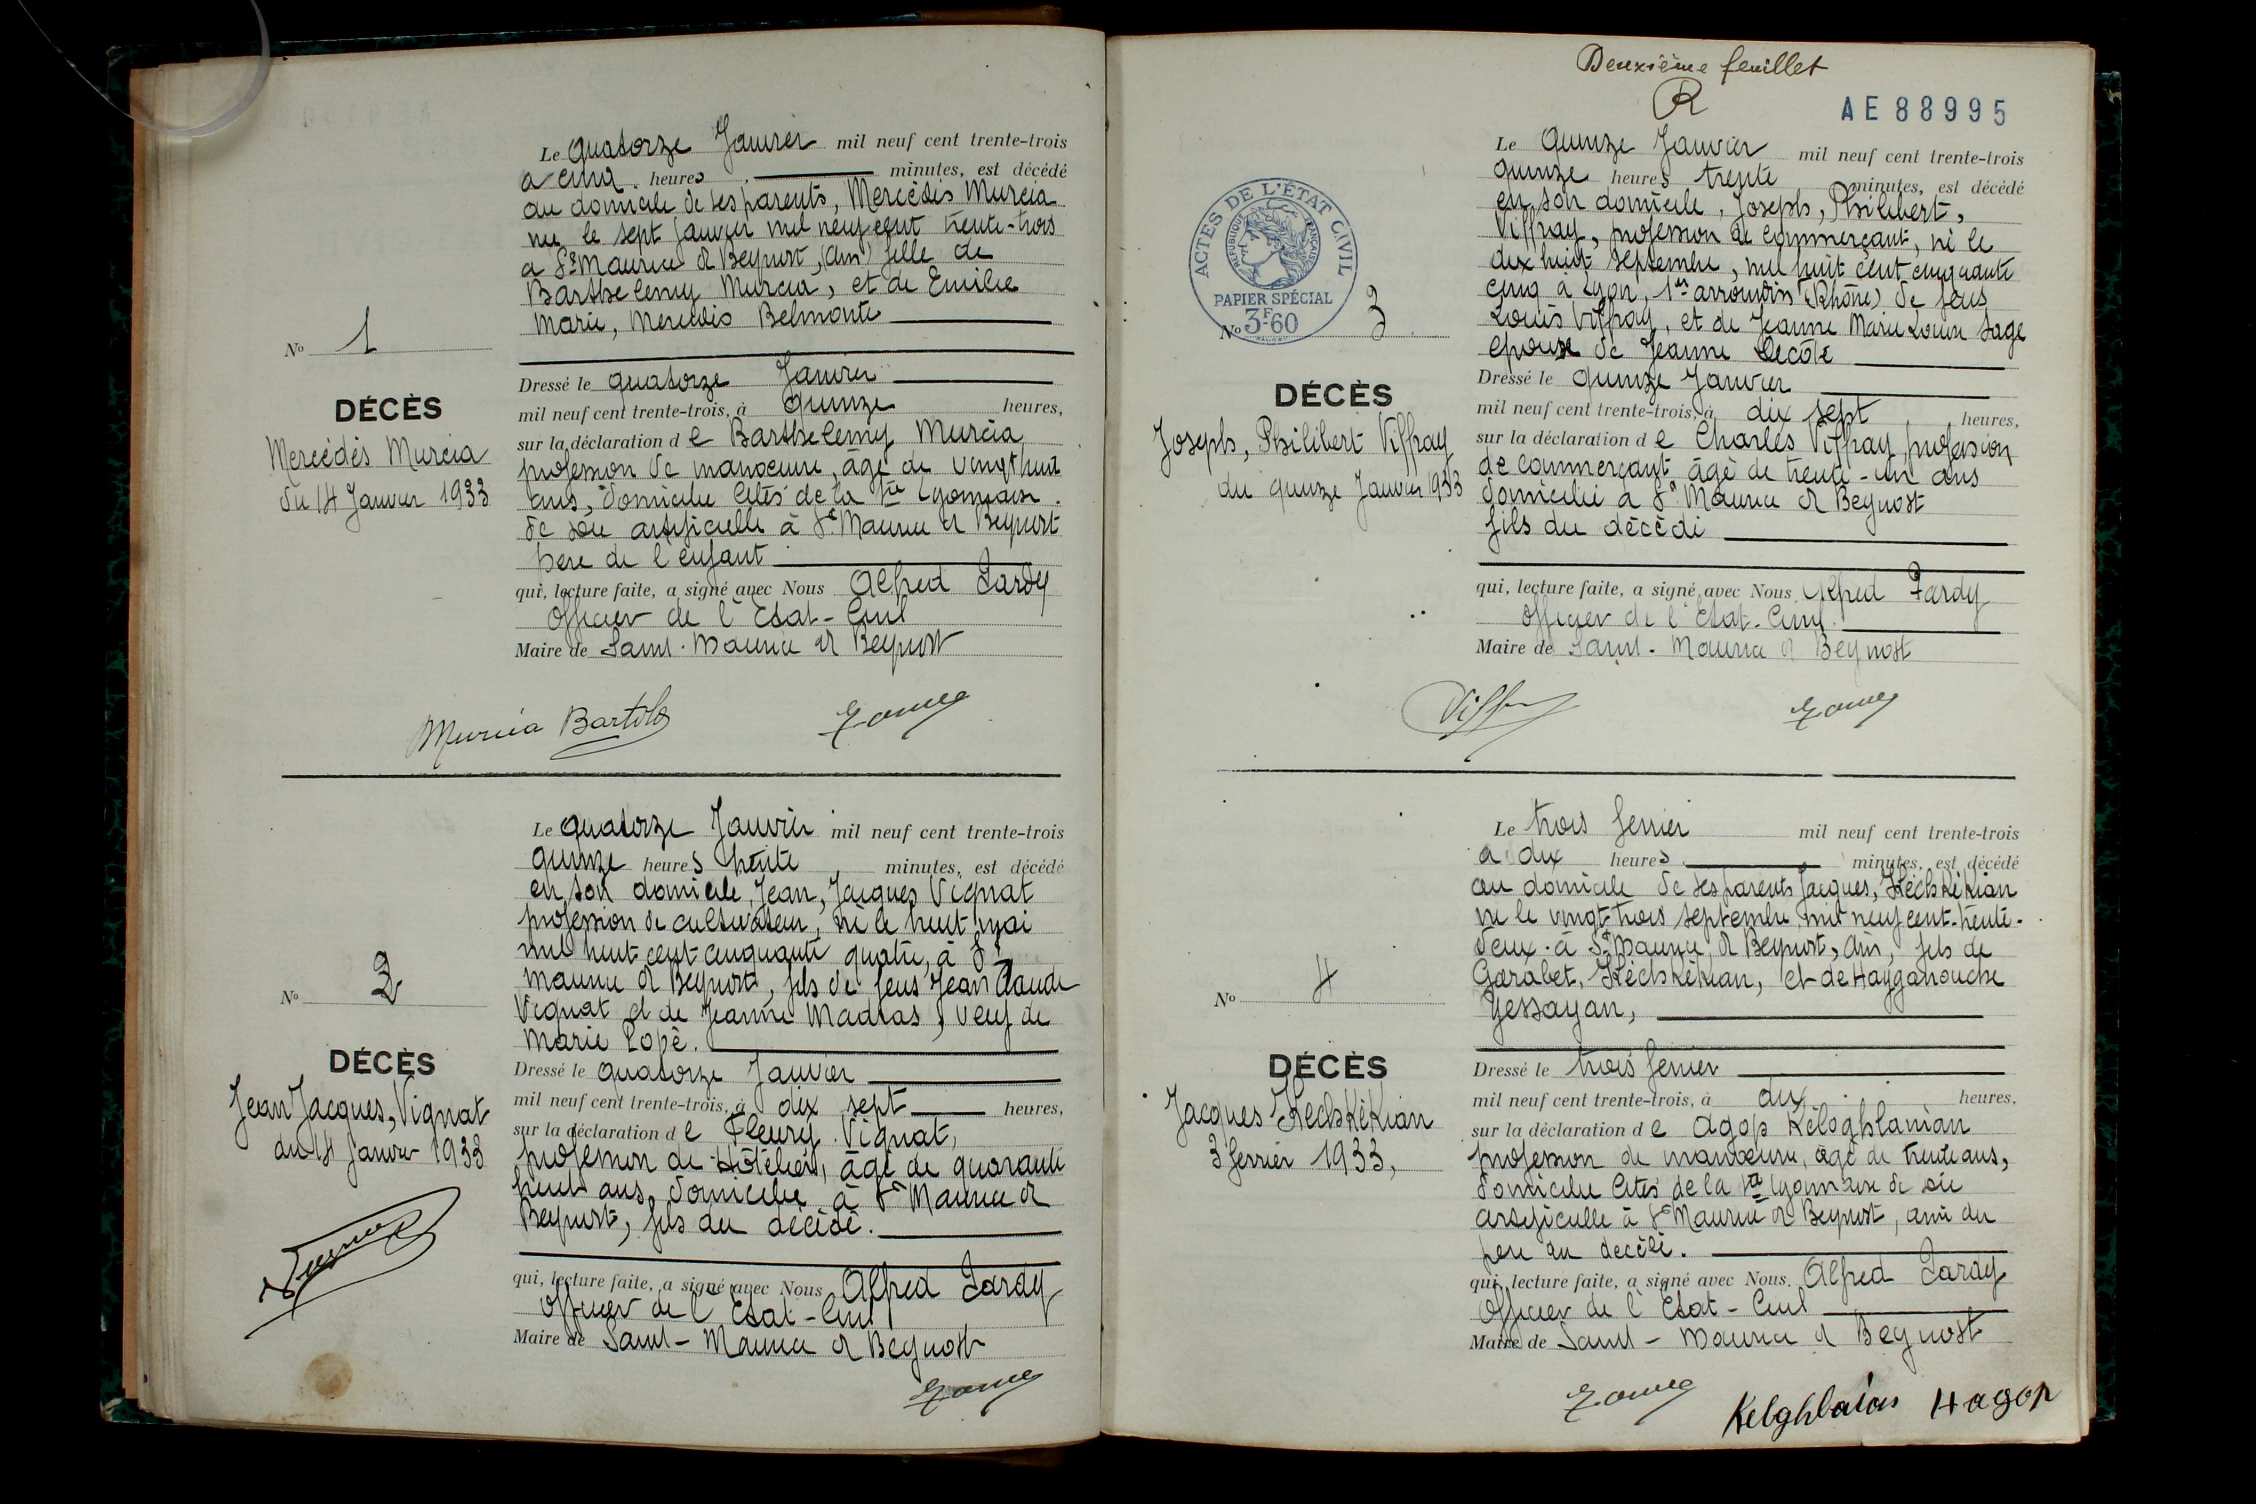 Le quatorze Janvier mil neuf cent trente-trois
a cinq heures minutes, est décédé
au domicile de ses parents, Mercédès Murcia
née le sept Janvier mil neuf cent trente-trois
a St Maurice de Beynost, (Ain) fille de
Barthelemy Murcia, et de Emilie
Marie, Mercédès Belmonte
No 1
DÉCÈS
Mercédès Murcia
du 14 Janvier 1933
Dressé le quatorze Janvier
mil neuf cent trente-trois, à quinze heures,
sur la déclaration de Barthelemy Murcia
profession de manœuvre, âgé de vingt huit
ans, domicilié Cités de la Sté Lyonnaise
de soie artificielle à St Maurice de Beynost
père de l'enfant
qui, lecture faite, a signé avec Nous Alfred Tardy
Officier de l'Etat-Civil
Maire de Saint-Maurice de Beynost
Murcia Bartolo
Le quatorze Janvier mil neuf cent trente-trois
quinze heures trente minutes, est décédé
en son domicile, Jean, Jacques Vignat
profession de cultivateur, né le huit mai
mil huit cent cinquante quatre, à St
Maurice de Beynost, fils de feus Jean Claude
Vignat et de Jeanne Madras, veuf de
Marie Popé.
No 2
DÉCÈS
Jean Jacques, Vignat
du 14 Janvier 1933
Dressé le quatorze Janvier
mil neuf cent trente-trois, à dix sept heures,
sur la déclaration de Fleury Vignat,
profession de Hôtelier, âgé de quarante
huit ans, domicilié à St Maurice de
Beynost, fils du décédé.
qui, lecture faite, a signé avec Nous Alfred Tardy
Officier de l'Etat-Civil
Maire de Saint-Maurice de Beynost
Vignat
Deuxième feuillet
R
AE 88995
Le quinze Janvier mil neuf cent trente-trois
quinze heures trente minutes, est décédé
en son domicile, Joseph, Philibert,
Viffray, profession de commerçant, né le
dix huit septembre, mil huit cent cinquante
cinq à Lyon, 1er arrondis (Rhône) de feus
Louis Viffray, et de Jeanne Marie Louise Sage
époux de Jeanne Lecôte
ACTES DE L'ÉTAT CIVIL
RÉPUBLIQUE FRANÇAISE
PAPIER SPÉCIAL
3F60
No 3
DÉCÈS
Joseph, Philibert Viffray
du quinze Janvier 1933
Dressé le quinze Janvier
mil neuf cent trente-trois, à dix sept heures,
sur la déclaration de Charles Viffray, profession
de commerçant âgé de trente-un ans
domicilié à St Maurice de Beynost
fils du décédé
qui, lecture faite, a signé avec Nous Alfred Tardy
Officier de l'Etat-Civil
Maire de Saint-Maurice de Beynost
Le trois fevrier mil neuf cent trente-trois
a dix heures minutes, est décédé
au domicile de ses parents Jacques, Kéchkékian
né le vingt-trois septembre mil neuf cent-trente-
deux à St Maurice de Beynost, Ain, fils de
Garabet, Kéchkékian, et de Hayganouche
Yessayan,
No 4
DÉCÈS
Jacques Kechkékian
3 fevrier 1933,
Dressé le trois fevrier
mil neuf cent trente-trois, à dix heures,
sur la déclaration de Agop Kéloghlanian
profession de manœuvre, âgé de trente ans,
domicilié Cités de la Sté Lyonnaise de soie
artificielle à St Maurice de Beynost, ami du
père du décédé.
qui, lecture faite, a signé avec Nous Alfred Tardy
Officier de l'Etat-Civil
Maire de Saint-Maurice de Beynost
Hagop